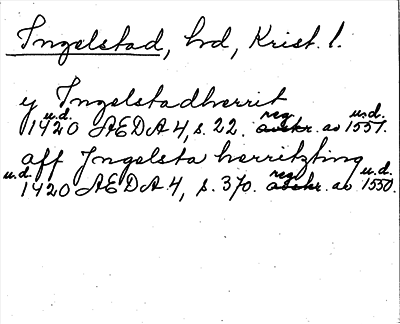 Ingelstad, hd, Krist. l.
y Ingelstadherrit
u.d. 1420 ÆDA 4, s. 22. reg. avskr. av u.d. 1551.
aff Jngelsta herritzting
u.d. 1420 ÆDA 4, s. 370. reg. avskr. av u.d. 1550.